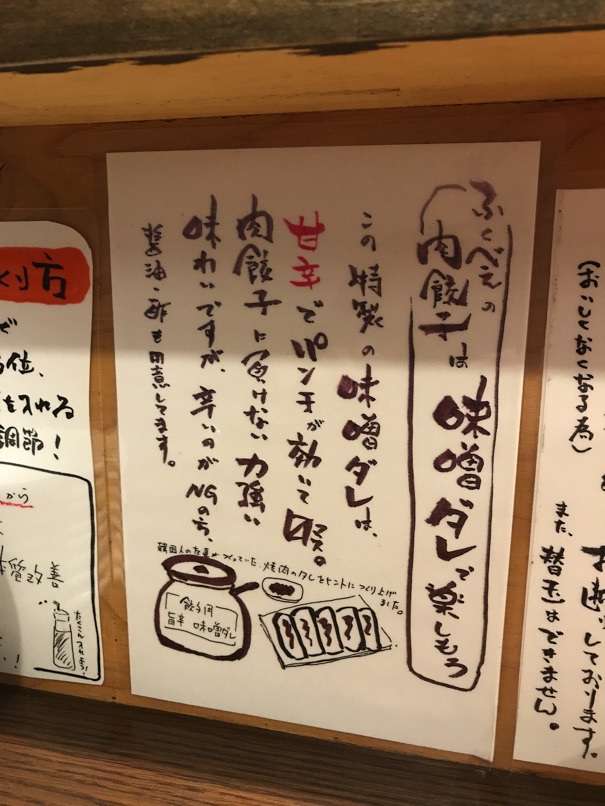 (おいしくなくなる為)
お断りしております。
また、替玉はできません。
ふくべえの
肉餃子は味噌ダレで楽しもう
この特製の味噌ダレは、
甘辛でパンチが効いて
肉餃子に負けない力強い
味わいですが、辛いのがNGの方、
醤油・酢も用意してます。
韓国人の友達がつくっていた、焼肉のタレをヒントにつくり上げ
ました。
餃子用
旨辛 味噌ダレ
くり方
位、
を入れる
調節!
から
質改善